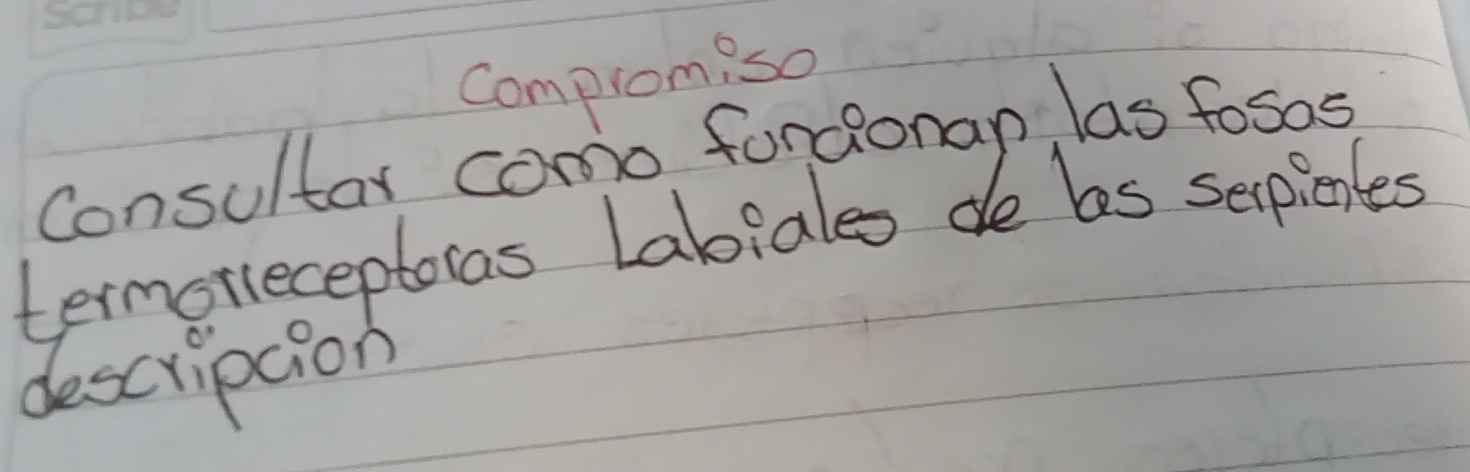 Scribe
Compromiso
Consultar como funcionan las fosas
termorreceptoras Labiales de las serpientes
descripcion